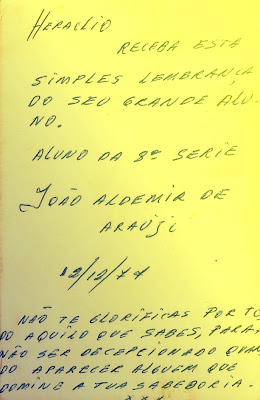 HERACLIO
RECEBA ESTA
SIMPLES LEMBRANÇA
DO SEU GRANDE ALU-
NO.
ALUNO DA 8ª SERIE
JOÃO ALDEMIR DE
ARAÚJI
12/12/77
NÃO TE GLORIFICAS POR TO,
DO AQUILO QUE SABES, PARA,
NÃO SER DECEPCIONADO QUAN,
DO APARECER ALGUEM QUE
DOMINE A TUA SABEDORIA.
xxx